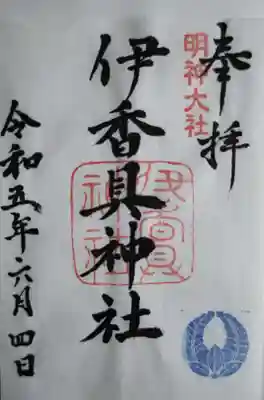 奉拝
明神大社
伊香具神社
伊香具神社
令和五年六月四日